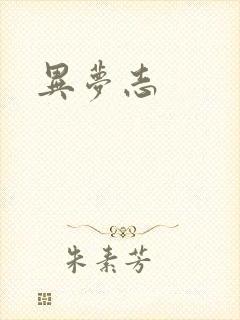 異夢志
朱素芳